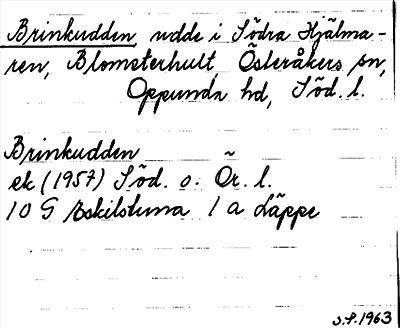 Brinkudden, udde i Södra Hjälma-
ren, Blomsterhult, Österåkers sn,
Oppunda hd, Söd. l.
Brinkudden
ek (1957) Söd. o. Ör. l.
10 G Eskilstuna 1 a Läppe
S.P. 1963